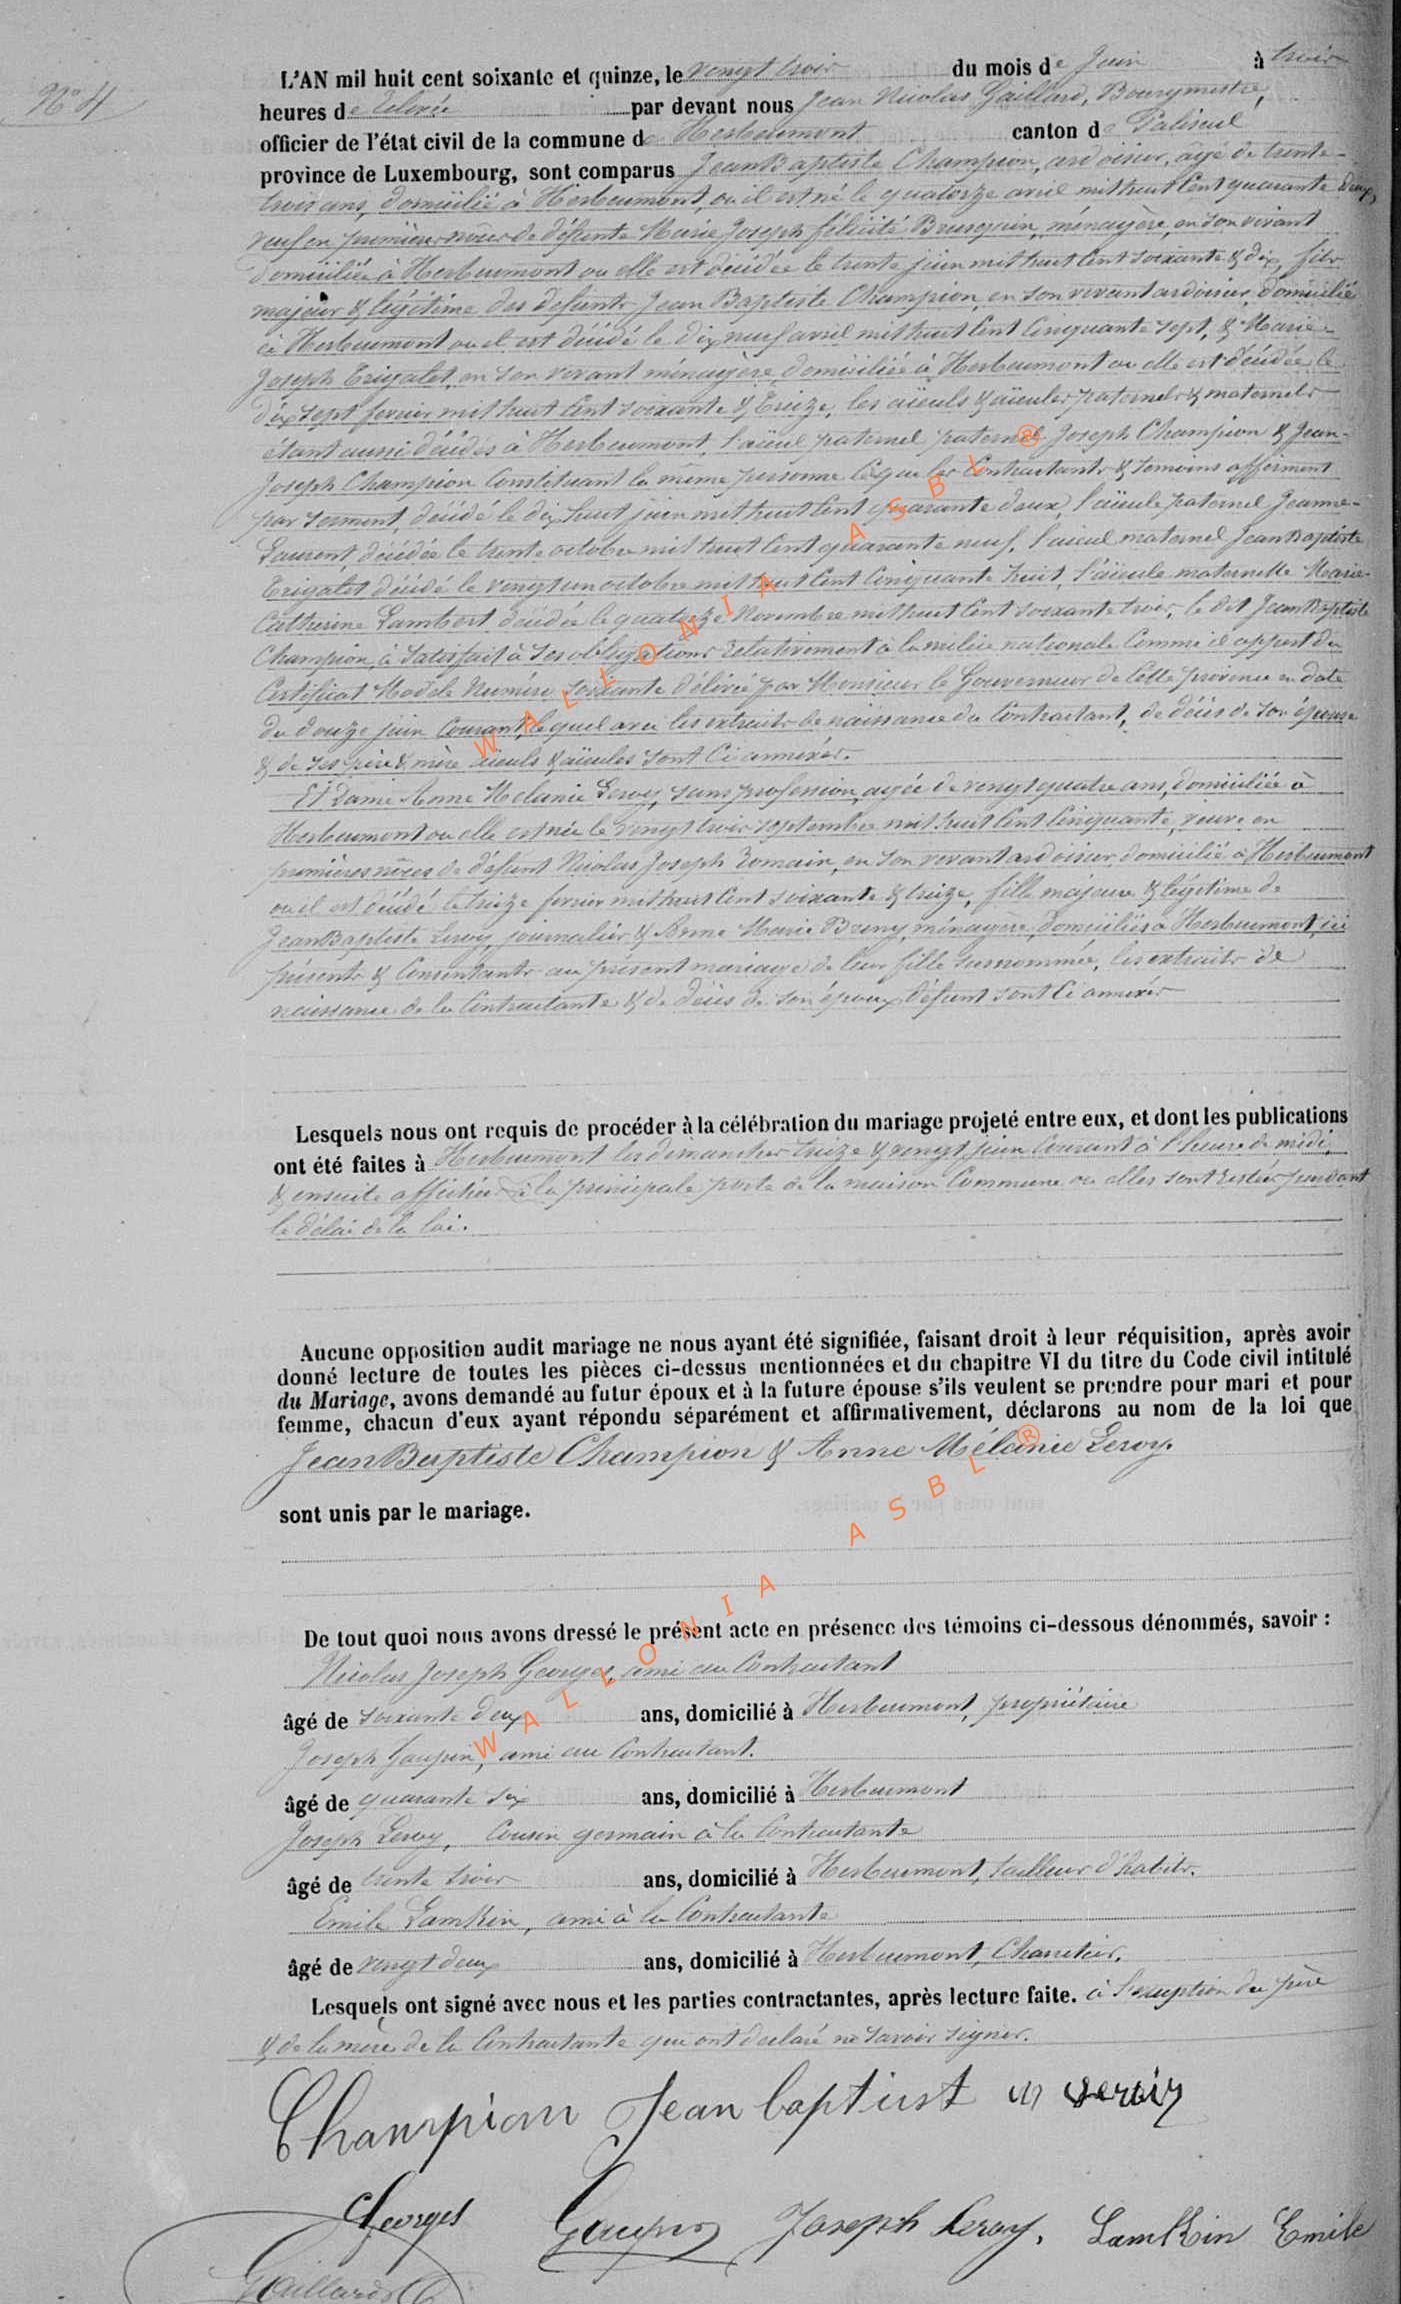 N° 4
L'AN mil huit cent soixante et quinze, le vingt trois du mois de Juin à trois
heures de relevée par devant nous Jean Nicolas Gaillard, Bourgmestre,
officier de l'état civil de la commune de Herbeumont canton de Paliseul
province de Luxembourg, sont comparus Jean Baptiste Champion, ardoisier, âgé de trente-
trois ans, domicilié à Herbeumont, ou il est né le quatorze avril mil huit cent quarante deux,
veuf en premières noces de défunte Marie Joseph félicité Brasquin, ménagère, en son vivant
domiciliée à Herbeumont ou elle est décédée le trente juin mil huit cent soixante & dix, fils
majeur & légitime des défunts Jean Baptiste Champion, en son vivant ardoisier, domicilié
à Herbeumont ou il est décédé le dix neuf avril mil huit cent cinquante sept, & Marie
Joseph Trigalet, en son vivant ménagère, domiciliée à Herbeumont ou elle est décédée le
dix sept fevrier mil huit cent soixante & treize, les aïeuls & aïeules paternels & maternels
étant aussi décédés à Herbeumont, l'aïeul paternel paternel Joseph Champion & Jean-
Joseph Champion constituant la même personne ce que les contractants & témoins afferment
par serment, décédé le dix huit juin mil huit cent quarante deux, l'aïeule paternel Jeanne-
Laurent, décédée le trente octobre mil huit cent quarante neuf, l'aïeul maternel Jean Baptiste
Trigalet décédé le vingt un octobre mil huit cent cinquante huit, l'aïeule maternelle Marie-
Catherine Lambert décédée le quatorze Novembre mil huit cent soixante trois, le dit Jean Baptiste
Champion, à satisfait à ses obligations relativement à la milice nationale comme il appert du
Certificat Modèle Numéro soixante délivré par Monsieur le Gouverneur de cette province en date
du douze juin courant, lequel avec les extraits de naissance du contractant, de décès de son épouse
& de ses père & mère aïeuls & aïeules sont ci annexés.
Et Dame Anne Melanie Leroy, sans profession, agée de vingt quatre ans, domiciliée à
Herbeumont ou elle est née le vingt trois septembre mil huit cent cinquante, veuve en
premières noces de défunt Nicolas Joseph Romain, en son vivant ardoisier, domicilié à Herbeumont
ou il est décédé le treize fevrier mil huit cent soixante & treize, fille majeure & légitime de
Jean Baptiste Leroy, journalier & Anne Marie Breny, ménagère, domiciliés à Herbeumont, ici
présents & consentants au présent mariage de leur fille susnommée, les extraits de
naissance de la contractante & de décès de son époux défunt sont ci annexés
Lesquels nous ont requis de procéder à la célébration du mariage projeté entre eux, et dont les publications
ont été faites à Herbeumont les dimanches treize & vingt juin courant à l'heure de midi,
& ensuite affichées à la principale porte de la maison Commune ou elles sont restées pendant
le délai de la loi.
Aucune opposition audit mariage ne nous ayant été signifiée, faisant droit à leur réquisition, après avoir
donné lecture de toutes les pièces ci-dessus mentionnées et du chapitre VI du titre du Code civil intitulé
du Mariage, avons demandé au futur époux et à la future épouse s'ils veulent se prendre pour mari et pour
femme, chacun d'eux ayant répondu séparément et affirmativement, déclarons au nom de la loi que
Jean Baptiste Champion & Anne Mélanie Leroy.
sont unis par le mariage.
De tout quoi nous avons dressé le présent acte en présence des témoins ci-dessous dénommés, savoir :
Nicolas Joseph Georges, ami au Contractant
âgé de soixante deux ans, domicilié à Herbeumont, propriétaire
Joseph Gaupin, ami au Contractant.
âgé de quarante six ans, domicilié à Herbeumont
Joseph Leroy, Cousin germain à la Contractante
âgé de trente trois ans, domicilié à Herbeumont, tailleur d'habits.
Emile Lamkin, ami à la Contractante
âgé de vingt deux ans, domicilié à Herbeumont, Charretier.
Lesquels ont signé avec nous et les parties contractantes, après lecture faite. à l'exception du père
& de la mère de la Contractante qui ont déclaré ne savoir signer.
Champion Jean baptist
Georges Gaupin Joseph Leroy. Lamkin Emile
Gaillard
WALLONIA ASBL ®
WALLONIA ASBL ®